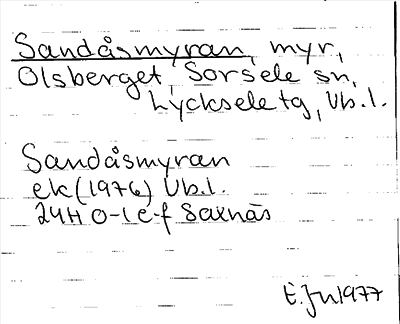 Sandåsmyran, myr,
Olsberget, Sorsele sn,
Lycksele tg, Vb.l.
Sandåsmyran
ek (1976) Vb.l.
24H 0-1 e-f Saxnäs
E. Ju 1977